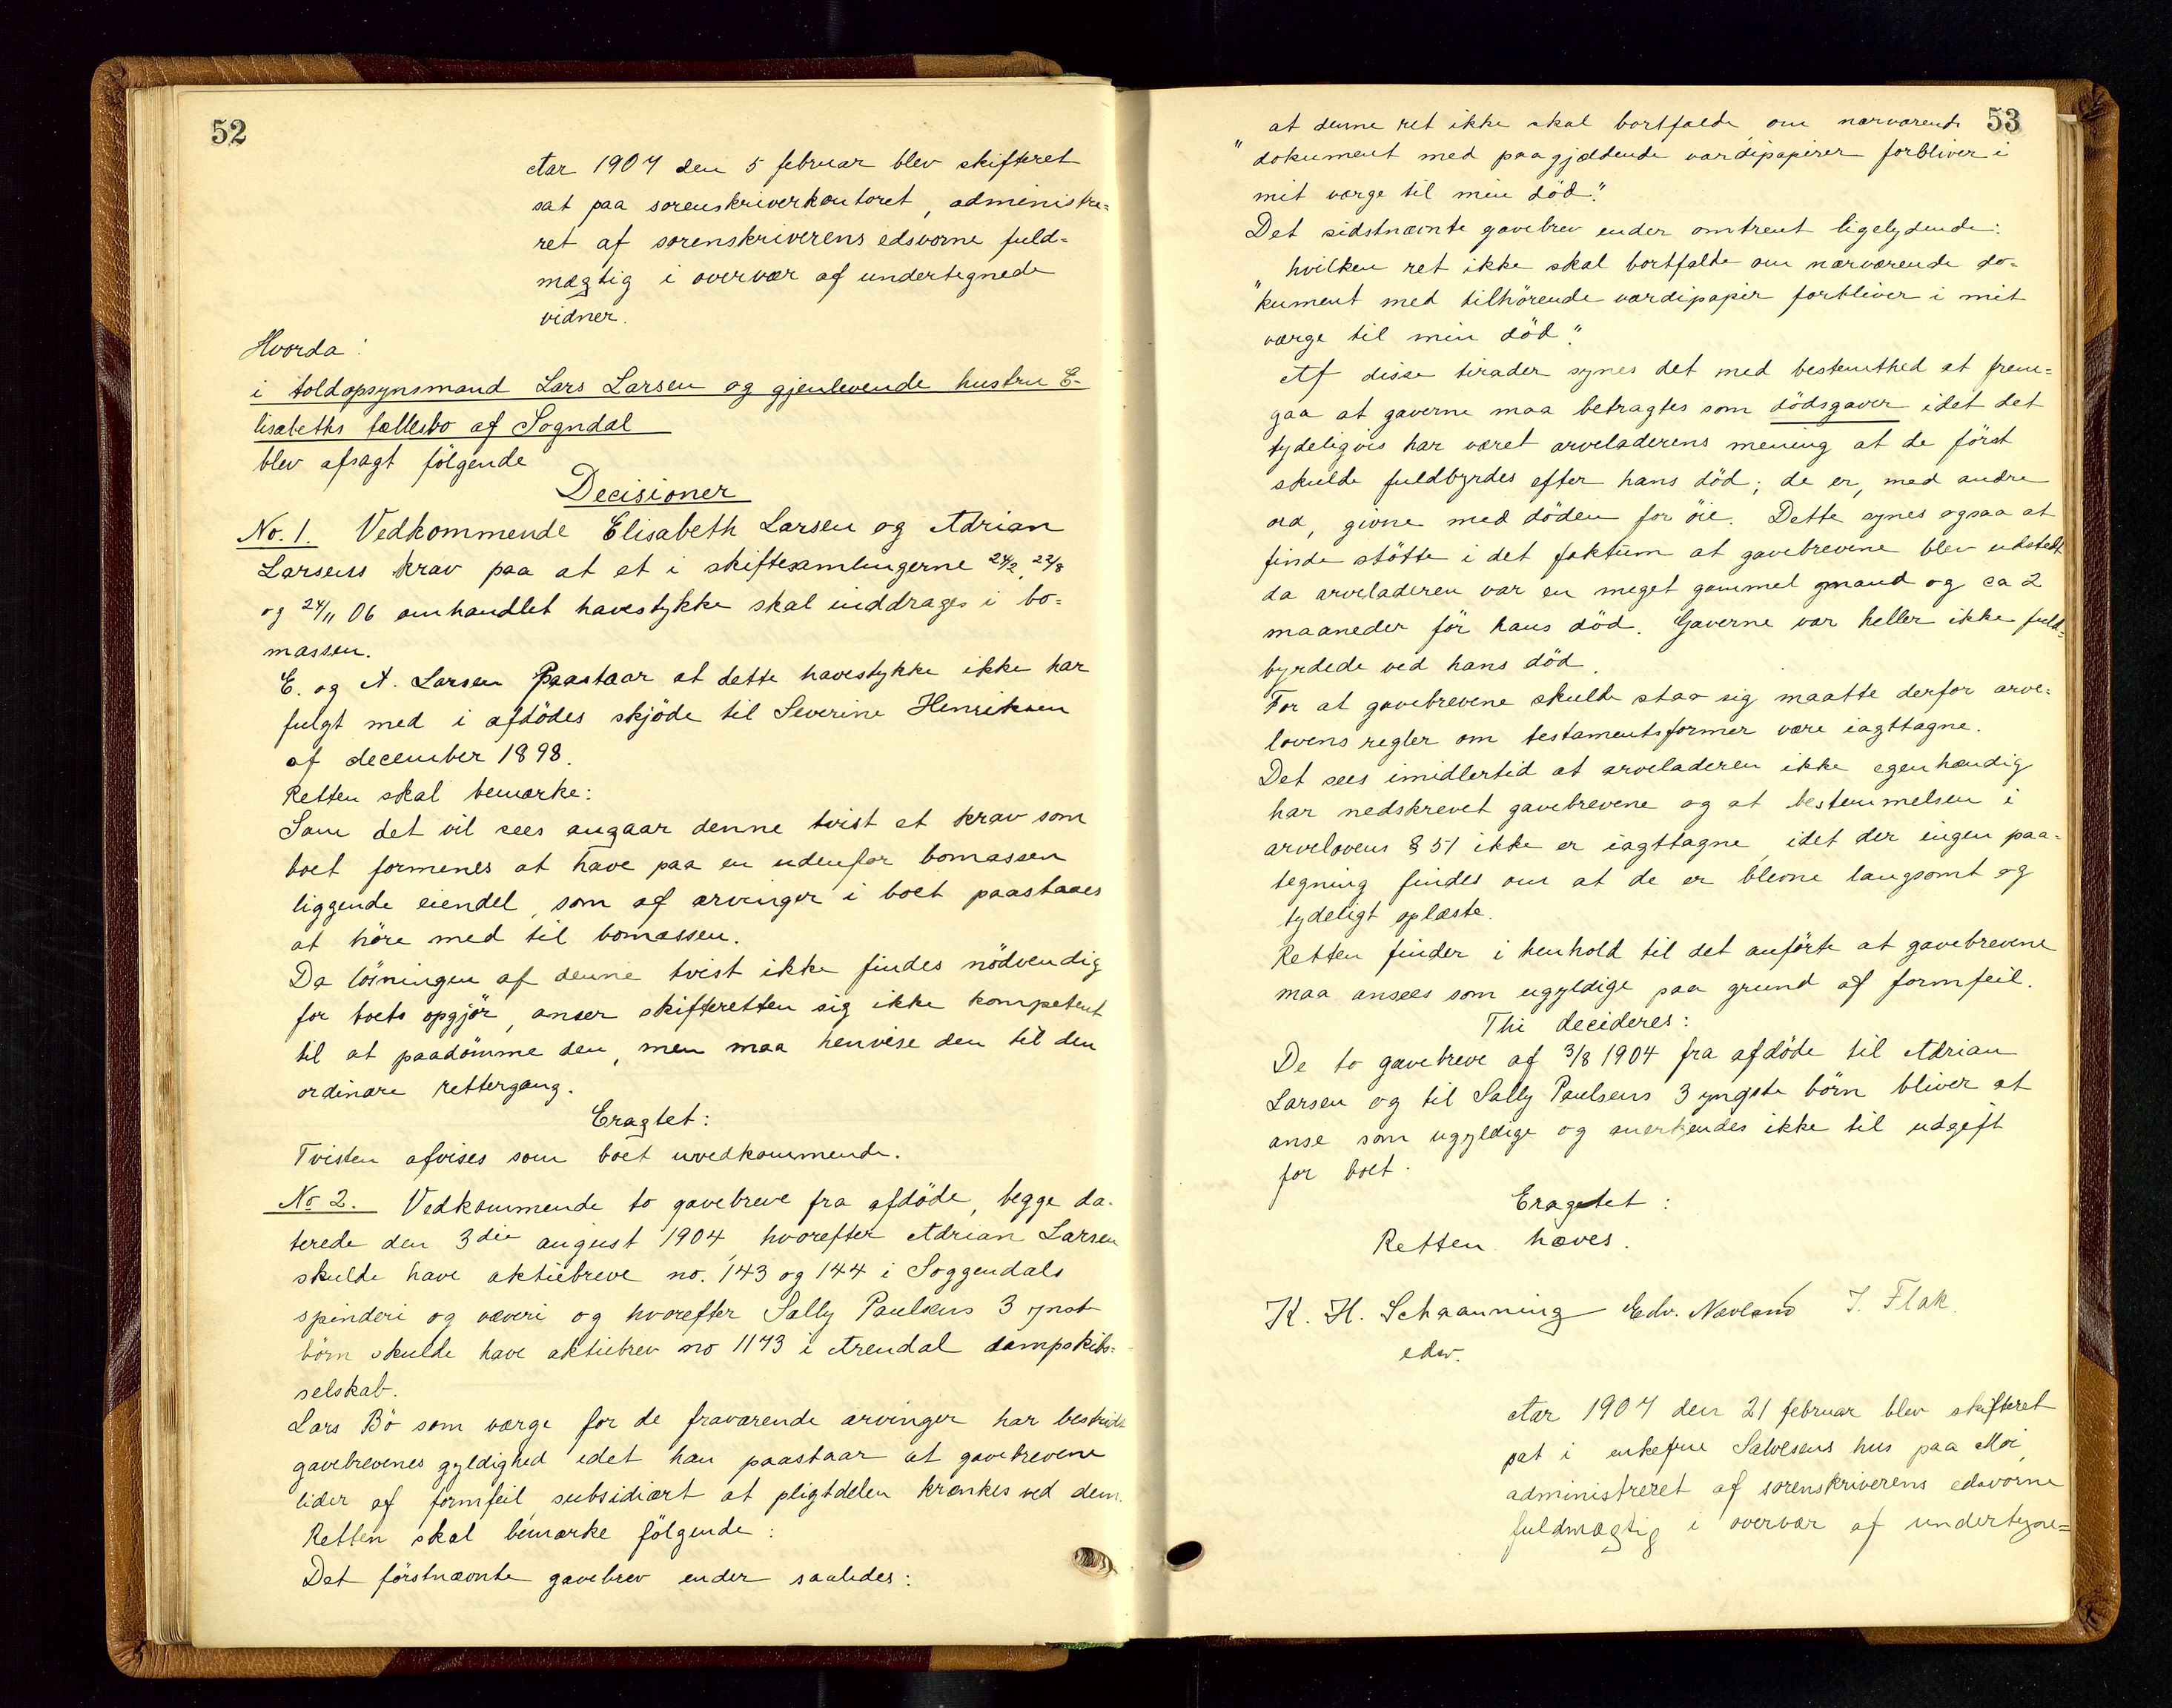 52
Aar 1907 den 5 februar blev skifteret
sat paa sorenskriverkontoret, administre=
ret af sorenskriverens edsvorne fuld=
mægtig i overvær af undertegnede
vidner.
Hvorda:
i toldopsynsmand Lars Larsen og gjenlevende hustru E-
lisabeths fællesbo af Sogndal
blev afsagt følgende
Decisioner
No. 1. Vedkommende Elisabeth Larsen og Adrian
Larsens krav paa at et i skiftesamlingerne 24/2, 22/8
og 24/11 06 omhandlet havestykke skal inddrages i bo=
massen.
E. og A. Larsen paastaar at dette havestykke ikke har
fulgt med i afdödes skjöde til Severine Henriksen
af december 1898.
Retten skal bemærke:
Som det vil sees angaar denne tvist et krav som
boet formenes at have paa en udenfor bomassen
liggende eiendel, som af arvinger i boet paastaaes
at höre med til bomassen.
Da lösningen af denne tvist ikke findes nödvendig
for boets opgjör, anser skifteretten sig ikke kompetent
til at paadömme den, men maa henvise den til den
ordinære rettergang.
Eragtet:
Tvisten afvises som boet uvedkommende.
No 2. Vedkommende to gavebreve fra afdöde, begge da-
terede den 3die august 1904, hvorefter Adrian Larsen
skulde have aktiebreve no. 143 og 144 i Soggendals
spinderi og væveri og hvorefter Sally Paulsens 3 ynst
börn skulde have aktiebrev no 1173 i Arendal dampskibs=
selskab.
Lars Bö som værge for de fraværende arvinger har bestridt
gavebrevenes gyldighed idet han paastaar at gavebrevene
lider af formfeil, subsidiært at pligtdelen krænkes ved dem.
Retten skal bemærke fölgende:
Det förstnævnte gavebrev ender saaledes:
53
at denne ret ikke skal bortfalde, om nærværende
"dokument med paagjældende værdipapirer forbliver i
mit værge til min död."
Det sidstnævnte gavebrev ender omtrent ligelydende:
hvilken ret ikke skal bortfalde om nærværende do=
"kument med tilhörende værdipapir forbliver i mit
værge til min död."
Af disse tirader synes det med bestemthed at frem=
gaa at gaverne maa betragtes som dödsgaver idet det
tydeligvis har været arveladerens mening at de först
skulde fuldbyrdes efter hans död; de er, med andre
ord, givne med döden for öie. Dette synes ogsaa at
finde stötte i det faktum at gavebrevene blev udstedt
da arveladeren var en meget gammel mand og ca 2
maaneder för hans död. Gaverne var heller ikke fuld=
byrdede ved hans död.
For at gavebrevene skulde staa sig maatte derfor arve=
lovens regler om testamentsformer være iagttagne.
Det sees imidlertid at arveladeren ikke egenhændig
har nedskrevet gavebrevene og at bestemmelsen i
arvelovens § 51 ikke er iagttagne, idet der ingen paa=
tegning findes om at de er blevne langsomt og
tydeligt oplæste.
Retten finder i henhold til det anförte at gavebrevene
maa ansees som ugyldige paa grund af formfeil.
Thi decideres:
De to gavebreve af 3/8 1904 fra afdöde til Adrian
Larsen og til Sally Paulsens 3 yngste börn bliver at
anse som ugyldige og anerkjendes ikke til udgift
for boet.
Eragtet:
Retten hæves.
K. H. Schaanning Edv. Nævland J. Flak.
edsv.
Aar 1907 den 21 februar blev skifteret
sat i enkefrue Salvesens hus paa Moi
administreret af sorenskriverens edsvorne
fuldmægtig i overvær af undertegne=